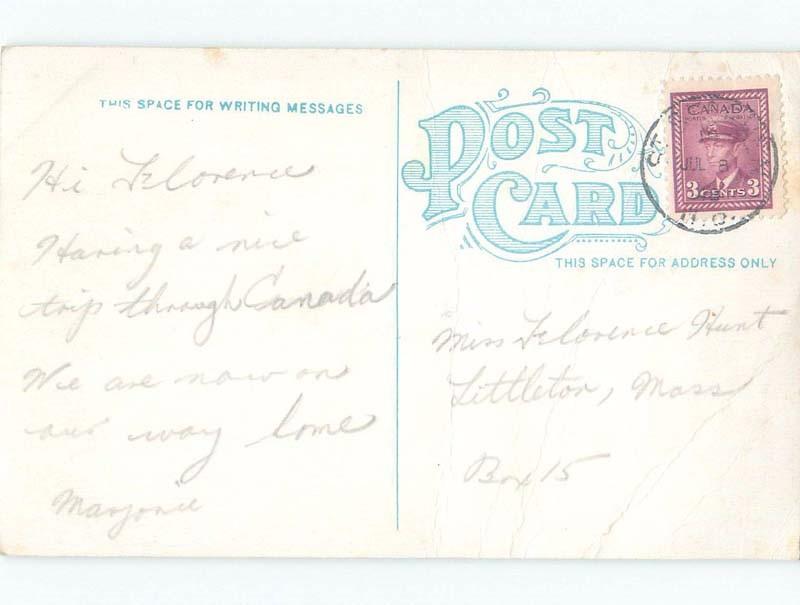 THIS SPACE FOR WRITING MESSAGES
Hi Florence
Having a nice
trip through Canada
We are now on
our way home
Marjorie
POST CARD
THIS SPACE FOR ADDRESS ONLY
CANADA
3 CENTS 3
JUL 8
Miss Florence Hunt
Littleton, Mass
Box 15